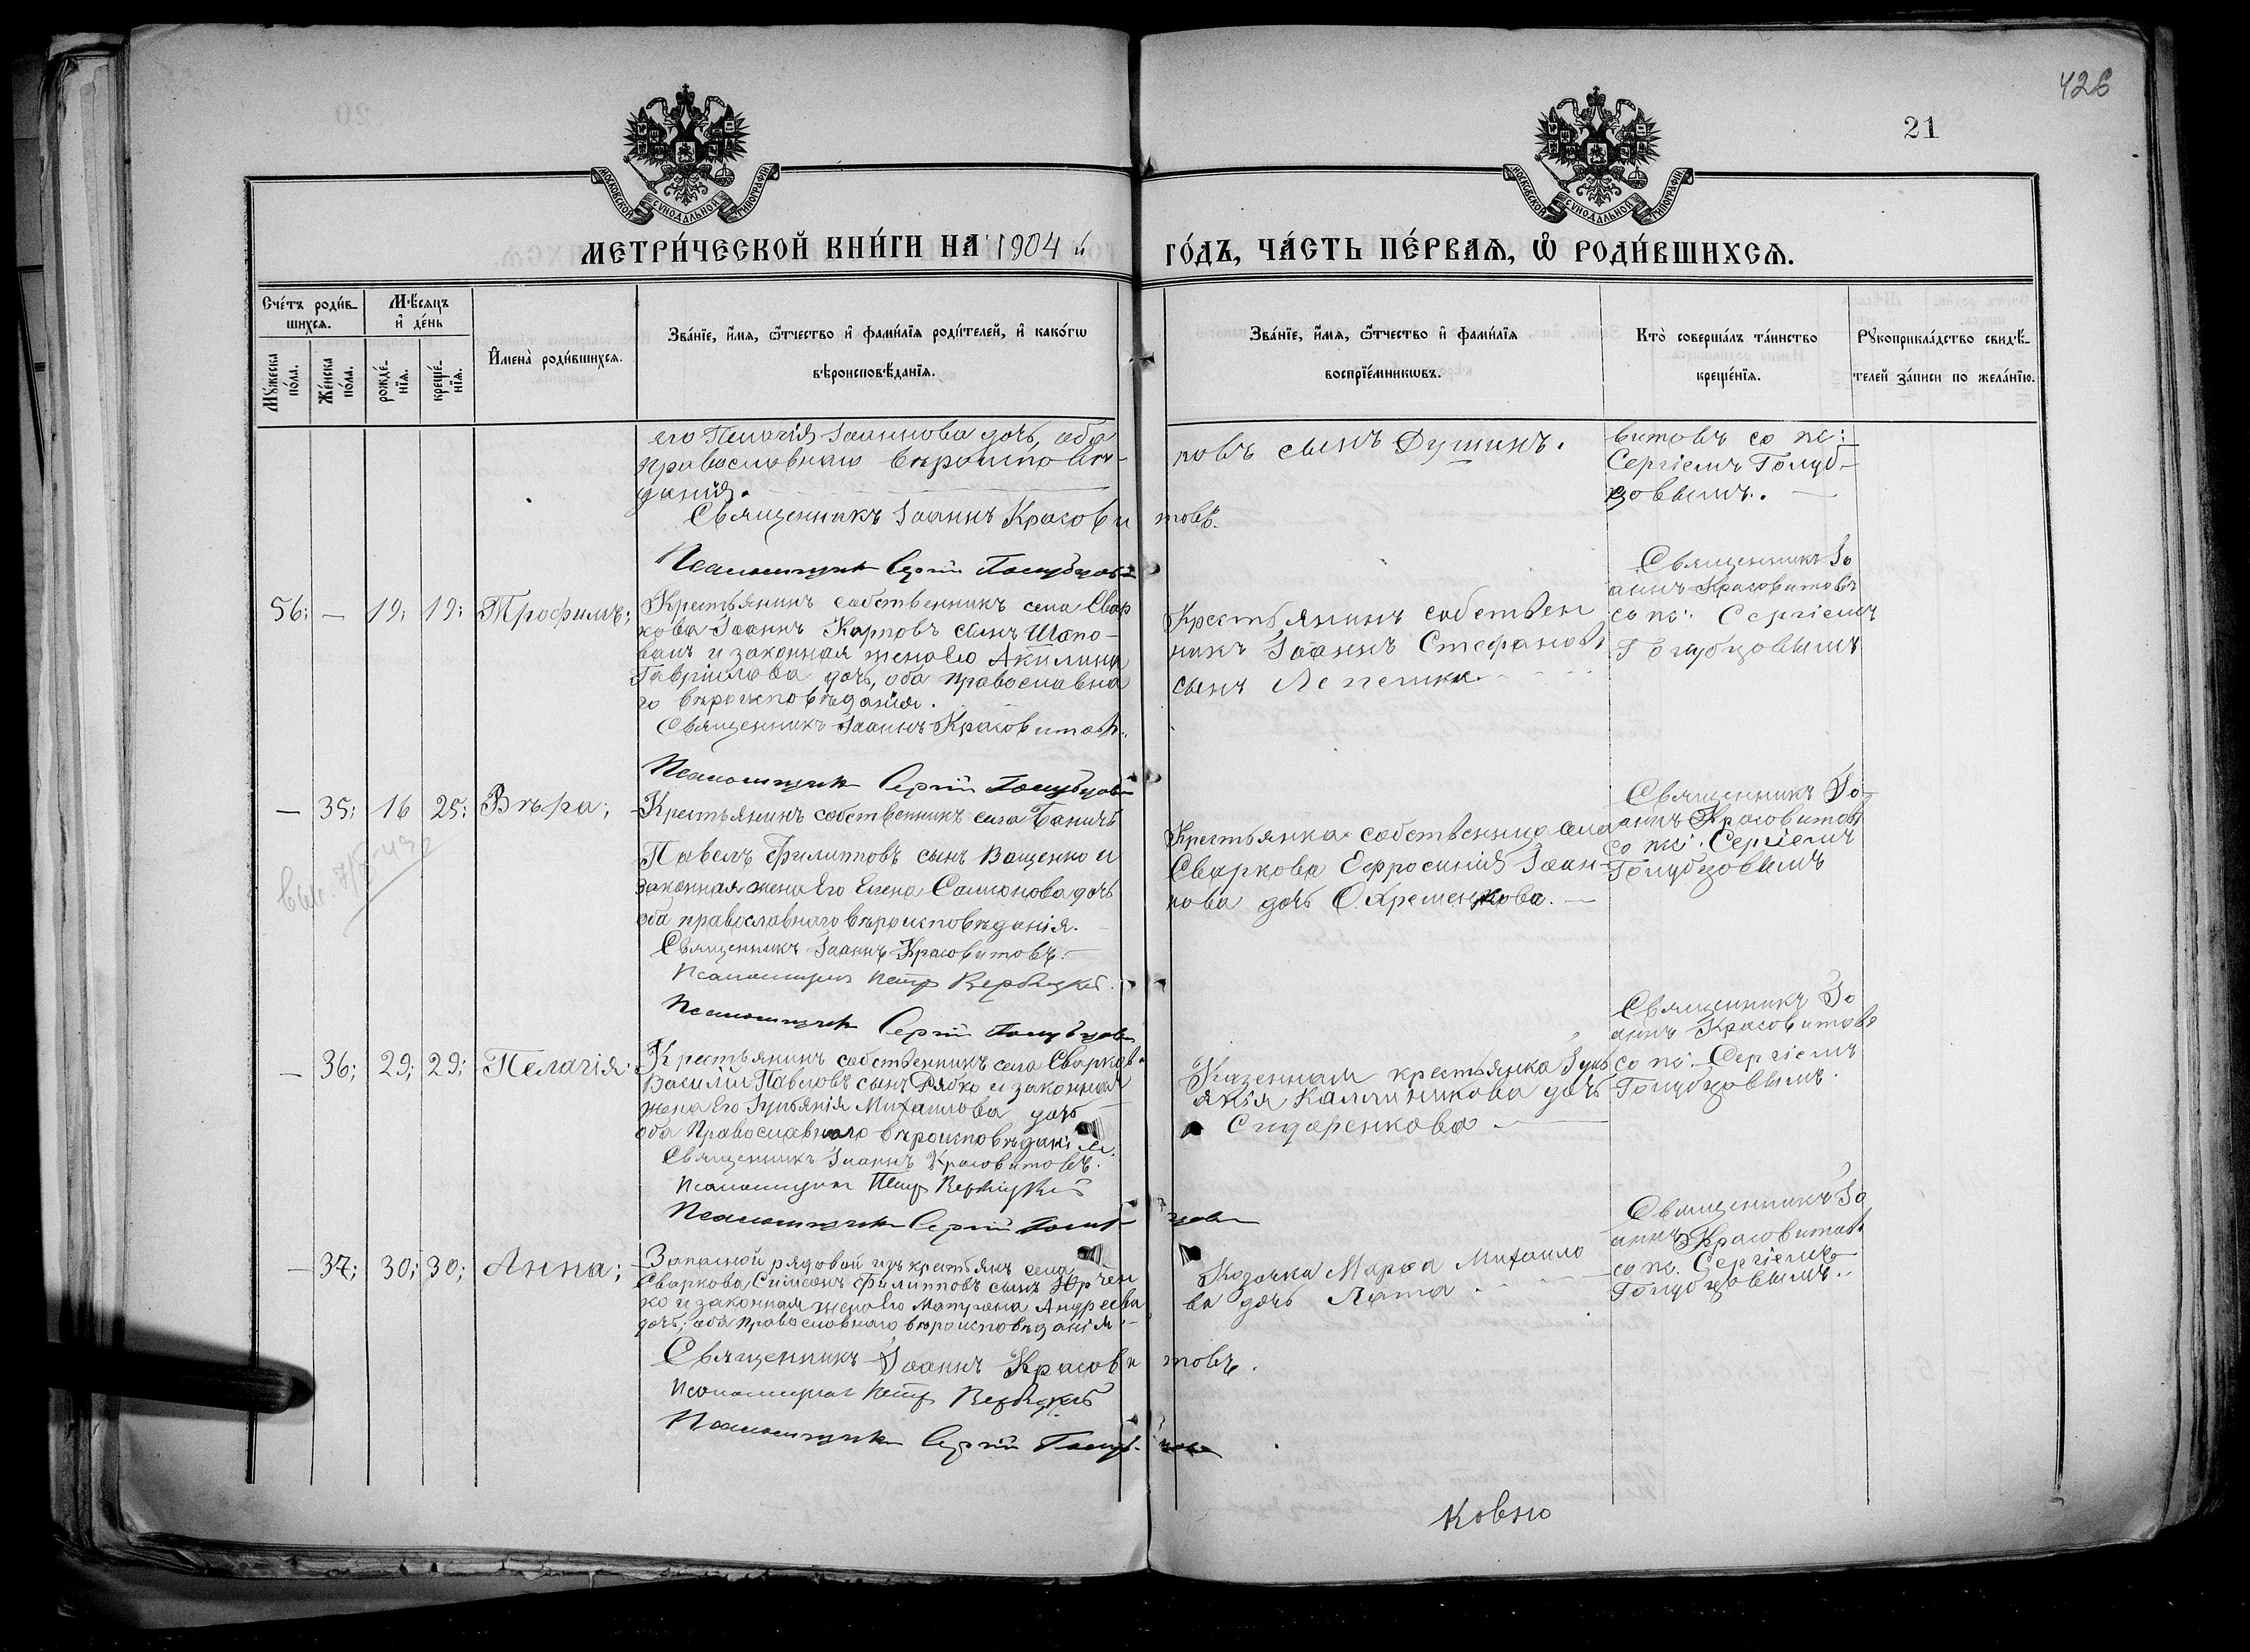 426
21
МОСКОВСКОЙ СУНОДАЛЬНОЙ ТИПОГРАФІИ
МОСКОВСКОЙ СУНОДАЛЬНОЙ ТИПОГРАФІИ
МЕТРИ́ЧЕСКОЙ КНИ́ГИ НА 1904 й
ГО́ДЪ, ЧА́СТЬ ПЕ́РВАѦ, Ѡ҆ РОДИ́ВШИХСѦ.
Сче́тъ роди́в-
шихсѧ.
Мѣ́сѧцъ
и҆ де́нь
Мꙋ́жеска по́ла.
Же́нска по́ла.
рожде́-нїѧ.
креще́-нїѧ.
И҆мена̀ роди́вшихсѧ.
Зва́нїе, и҆́мѧ, ѻ҆́тчество и҆ фами́лїѧ роди́телей, и҆ како́гѡ
вѣроисповѣ́данїѧ.
Зва́нїе, и҆́мѧ, ѻ҆́тчество и҆ фами́лїѧ
воспрїе́мникѡвъ.
Кто̀ соверша́лъ та́инство
креще́нїѧ.
Рꙋкоприкла́дство свидѣ́-
телей за́писи по жела́нїю.
его Пелагія Іоаннова дочь, оба
православнаго вѣроисповѣ-
данія.
Священникъ Іоаннъ Красовитовъ.
Псаломщикъ Сергій Голубцовъ
новъ сынъ Душинъ.
витовъ со пс:
Сергіемъ Голуб-
цовымъ.
56; — 19; 19; Трофимъ;
Крестьянинъ собственникъ села Свар
кова Іоаннъ Карповъ сынъ Шапо-
валъ и законная жена его Акилина
Гавріилова дочь, оба православна
го вѣроисповѣданія.
Священникъ Іоаннъ Красовитовъ.
Псаломщикъ Сергій Голубцовъ
Крестьянинъ собствен
никъ Іоаннъ Стефановъ
сынъ Лепешка.
Священникъ Іо
аннъ Красовитовъ
со пс: Сергіемъ
Голубцовымъ
— 35; 16 25; Вѣра;
Крестьянинъ собственникъ села Баничъ
Павелъ Филипповъ сынъ Ващенко и
законная жена его Елена Самсонова дочь
оба православнаго вѣроисповѣданія.
Священникъ Іоаннъ Красовитовъ.
Псаломщикъ Петръ Вербицкій.
Псаломщикъ Сергій Голубцовъ
Крестьянка собственица села
Сваркова Ефросинія Іоан-
нова дочь Охременкова.
Священникъ Іо-
аннъ Красовитовъ
со пс: Сергіемъ
Голубцовымъ
— 36; 29; 29; Пелагія.
Крестьянинъ собственникъ села Сварков
Василій Павловъ сынъ Рябко и законная
жена его Іуліянія Михаилова дочь
оба Православнаго вѣроисповѣданія.
Священникъ Іоаннъ Красовитовъ.
Псаломщикъ Петръ Вербицкій
Псаломщикъ Сергій Голубцовъ
Казенная крестьянка Іулі
янія Каллиникова дочь
Сидоренкова
Священникъ Іо
аннъ Красовитовъ
со пс: Сергіемъ
Голубцовымъ.
— 37; 30; 30; Анна;
Запасной рядовой изъ крестьянъ села
Сваркова, Симеонъ Филипповъ сынъ Юрчен
ко и законная жена его Матрона Андреева
дочь; оба православнаго вѣроисповѣданія
Священникъ Іоаннъ Красовитовъ.
Псаломщикъ Петръ Вербицкій
Псаломщикъ Сергій Голубцовъ
Козачка Марѳа Михаило
ва дочь Лата
Священникъ Іо
аннъ Красовитовъ
со пс. Сергіемъ
Голубцовымъ.